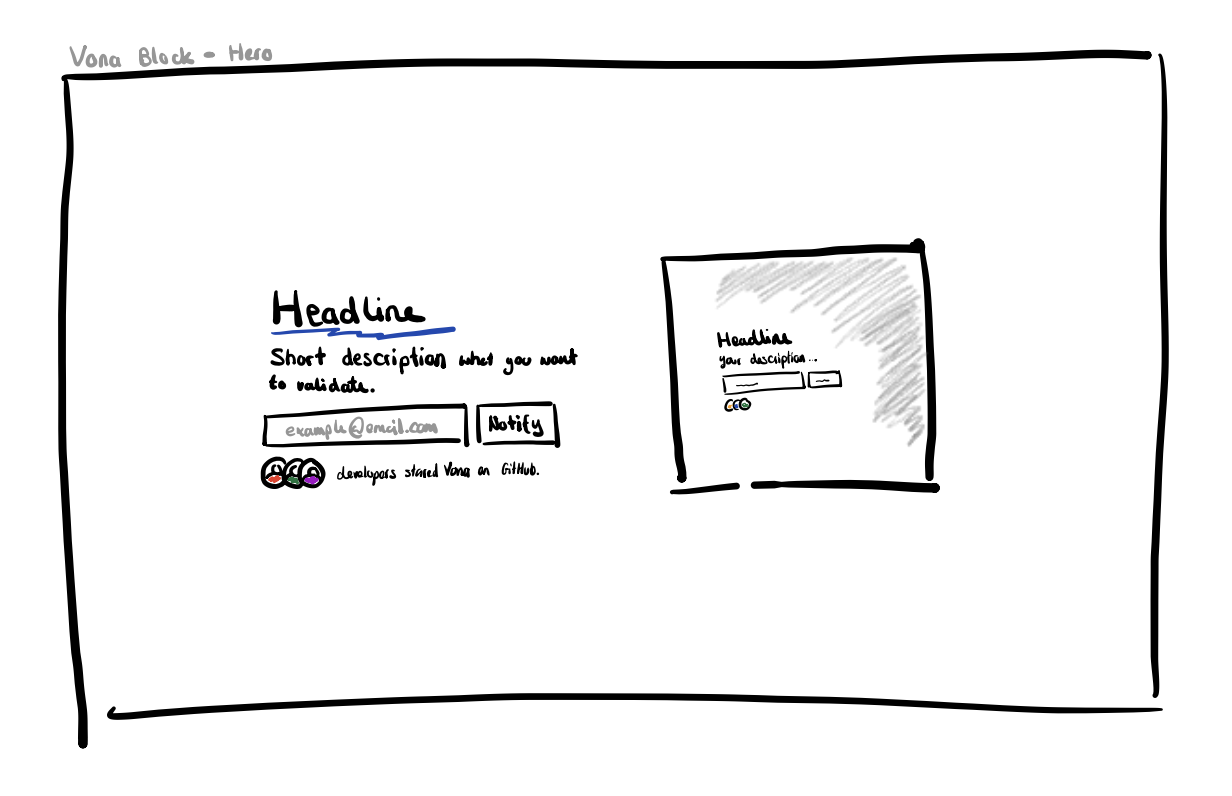 Vona Block - Hero
Headline
Short description what you want
to validate.
example@email.com
Notify
developers stared Vona on GitHub.
Headline
your description...